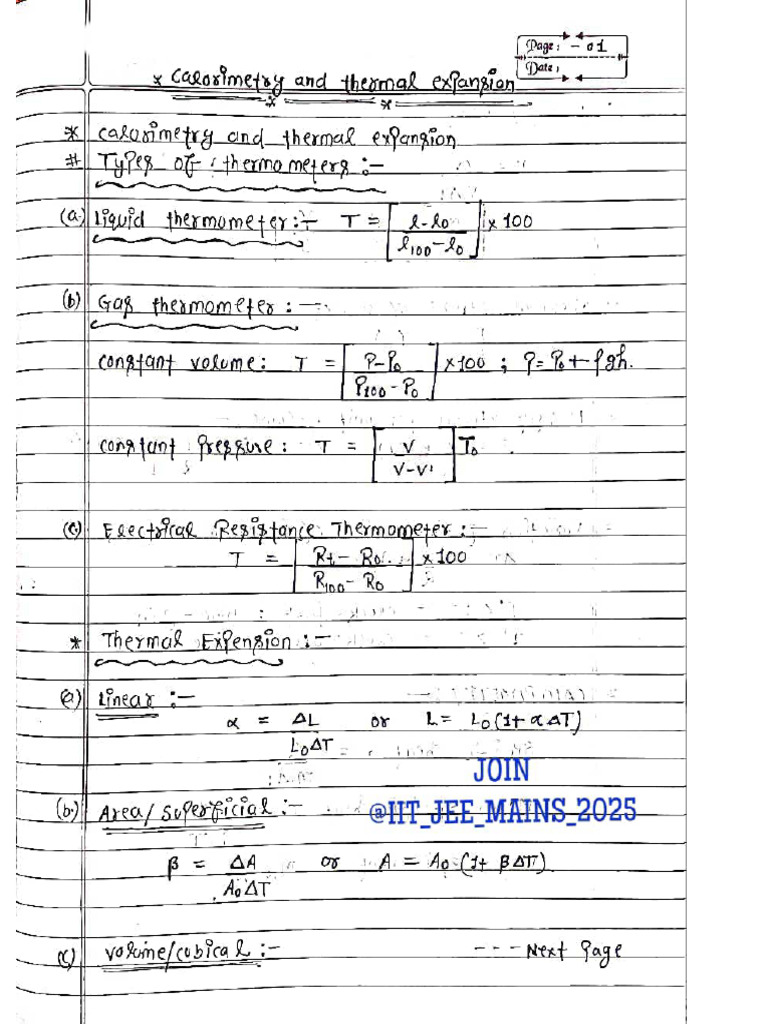 Page: - 01
Date:
* Calorimetry and thermal expansion
* Calorimetry and thermal expansion
# Types of thermometers :-
(a) Liquid thermometer :- T = [l-l0 / l100-l0] x 100
(b) Gas thermometer :-
constant volume: T = [P-P0 / P100-P0] x 100 ; P = P0 + ρgh.
constant Pressure: T = [V / V-V'] T0
(c) Electrical Resistance Thermometer :-
T = [Rt - R0 / R100 - R0] x 100
* Thermal Expension :-
(a) Linear :-
α = ΔL / L0ΔT or L = L0(1+αΔT)
JOIN
@IIT_JEE_MAINS_2025
(b) Area/Superficial :-
β = ΔA / A0ΔT or A = A0(1+βΔT)
(c) volume/cubical :- --- Next Page